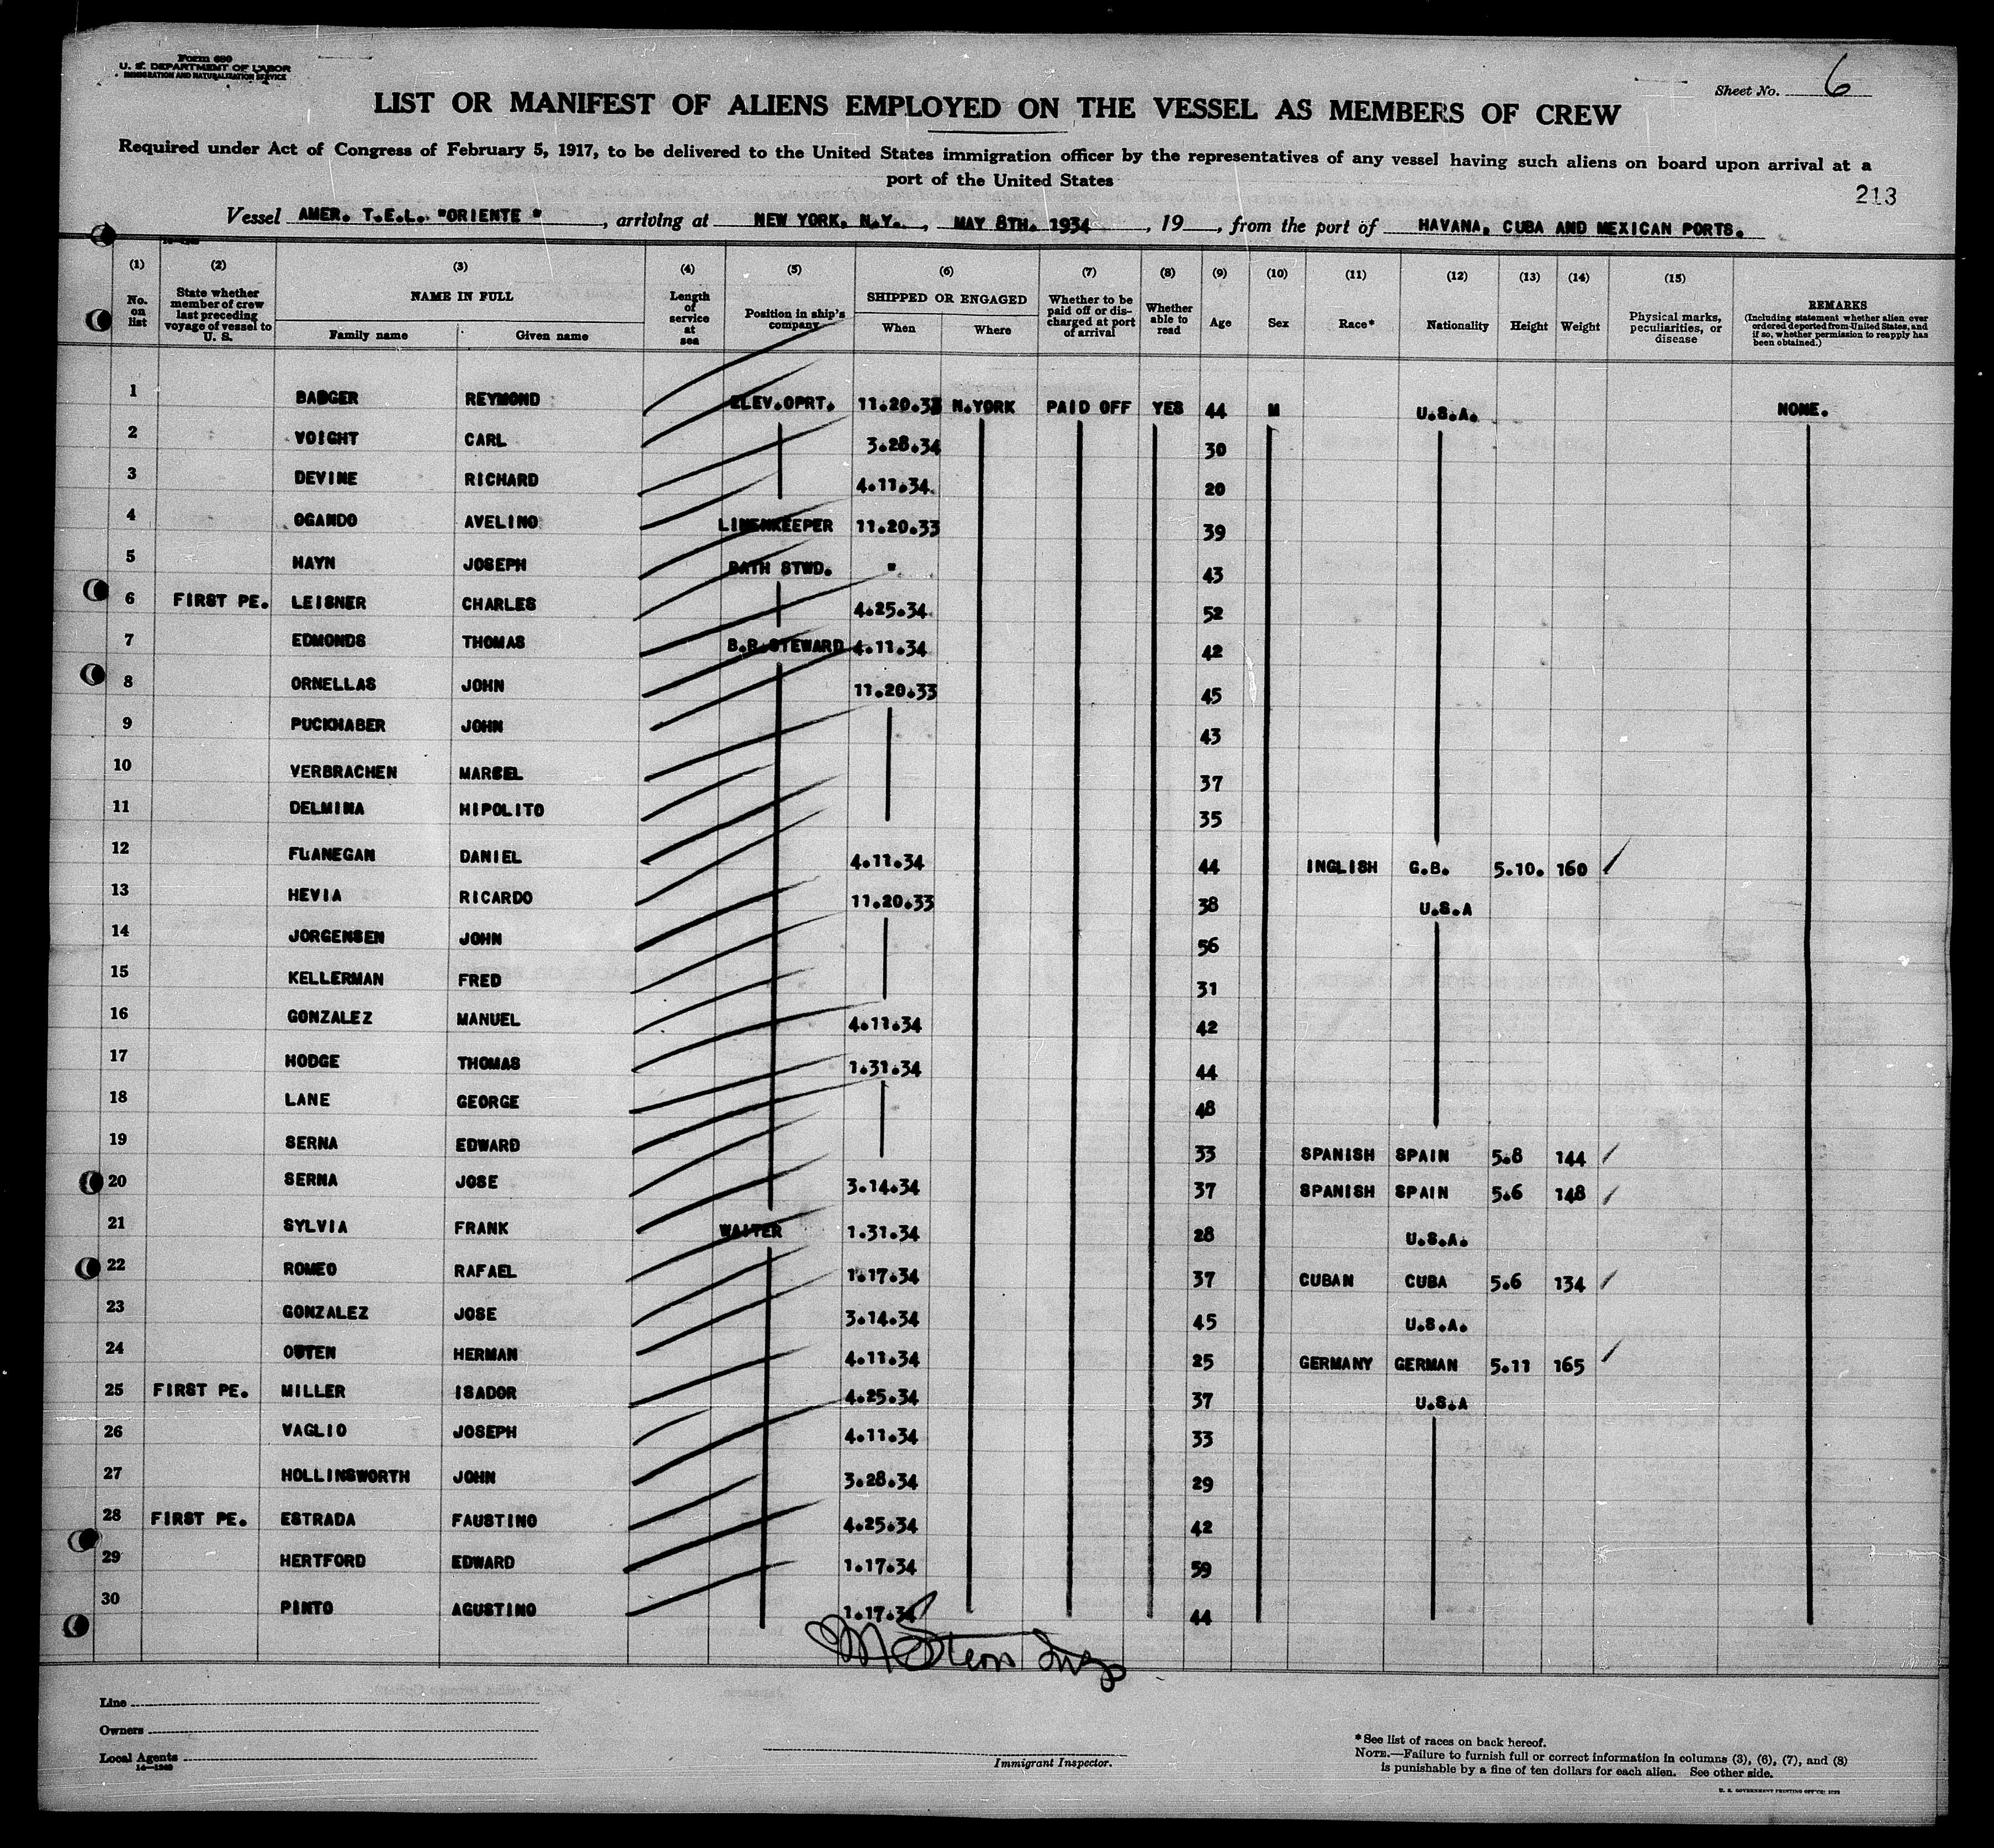 Form 680
U. S. DEPARTMENT OF LABOR
IMMIGRATION AND NATURALIZATION SERVICE
Sheet No. 6
LIST OR MANIFEST OF ALIENS EMPLOYED ON THE VESSEL AS MEMBERS OF CREW
Required under Act of Congress of February 5, 1917, to be delivered to the United States immigration officer by the representatives of any vessel having such aliens on board upon arrival at a
port of the United States
213
Vessel AMER. T.E.L. "ORIENTE", arriving at NEW YORK, N.Y., MAY 8TH. 1934, 19, from the port of HAVANA, CUBA AND MEXICAN PORTS.
(1) (2) (3) (4) (5) (6) (7) (8) (9) (10) (11) (12) (13) (14) (15)
No. on list
State whether member of crew last preceding voyage of vessel to U. S.
NAME IN FULL
Family name
Given name
Length of service at sea
Position in ship's company
SHIPPED OR ENGAGED
When
Where
Whether to be paid off or discharged at port of arrival
Whether able to read
Age
Sex
Race*
Nationality
Height
Weight
Physical marks, peculiarities, or disease
REMARKS
(Including statement whether alien ever ordered deported from United States, and if so, whether permission to reapply has been obtained.)
1 BADGER REYMOND ELEV.OPRT. 11.20.33 N.YORK PAID OFF YES 44 M U.S.A. NONE.
2 VOIGHT CARL 3.28.34 30
3 DEVINE RICHARD 4.11.34. 20
4 OGANDO AVELINO LINENKEEPER 11.20.33 39
5 HAYN JOSEPH BATH STWD. " 43
6 FIRST PE. LEISNER CHARLES 4.25.34 52
7 EDMONDS THOMAS B.R.STEWARD 4.11.34 42
8 ORNELLAS JOHN 11.20.33 45
9 PUCKHABER JOHN 43
10 VERBRACHEN MARCEL 37
11 DELMINA HIPOLITO 35
12 FLANEGAN DANIEL 4.11.34 44 INGLISH G.B. 5.10. 160 ✓
13 HEVIA RICARDO 11.20.33 38 U.S.A
14 JORGENSEN JOHN 56
15 KELLERMAN FRED 31
16 GONZALEZ MANUEL 4.11.34 42
17 HODGE THOMAS 1.31.34 44
18 LANE GEORGE 48
19 SERNA EDWARD 33 SPANISH SPAIN 5.8 144 ✓
20 SERNA JOSE 3.14.34 37 SPANISH SPAIN 5.6 148 ✓
21 SYLVIA FRANK WAITER 1.31.34 28 U.S.A.
22 ROMEO RAFAEL 1.17.34 37 CUBAN CUBA 5.6 134 ✓
23 GONZALEZ JOSE 3.14.34 45 U.S.A.
24 OSTEN HERMAN 4.11.34 25 GERMANY GERMAN 5.11 165 ✓
25 FIRST PE. MILLER ISADOR 4.25.34 37 U.S.A
26 VAGLIO JOSEPH 4.11.34 33
27 HOLLINSWORTH JOHN 3.28.34 29
28 FIRST PE. ESTRADA FAUSTINO 4.25.34 42
29 HERTFORD EDWARD 1.17.34 59
30 PINTO AGUSTINO 1.17.34 44
Line
Owners
Local Agents
Immigrant Inspector.
*See list of races on back hereof.
NOTE.—Failure to furnish full or correct information in columns (3), (6), (7), and (8)
is punishable by a fine of ten dollars for each alien. See other side.